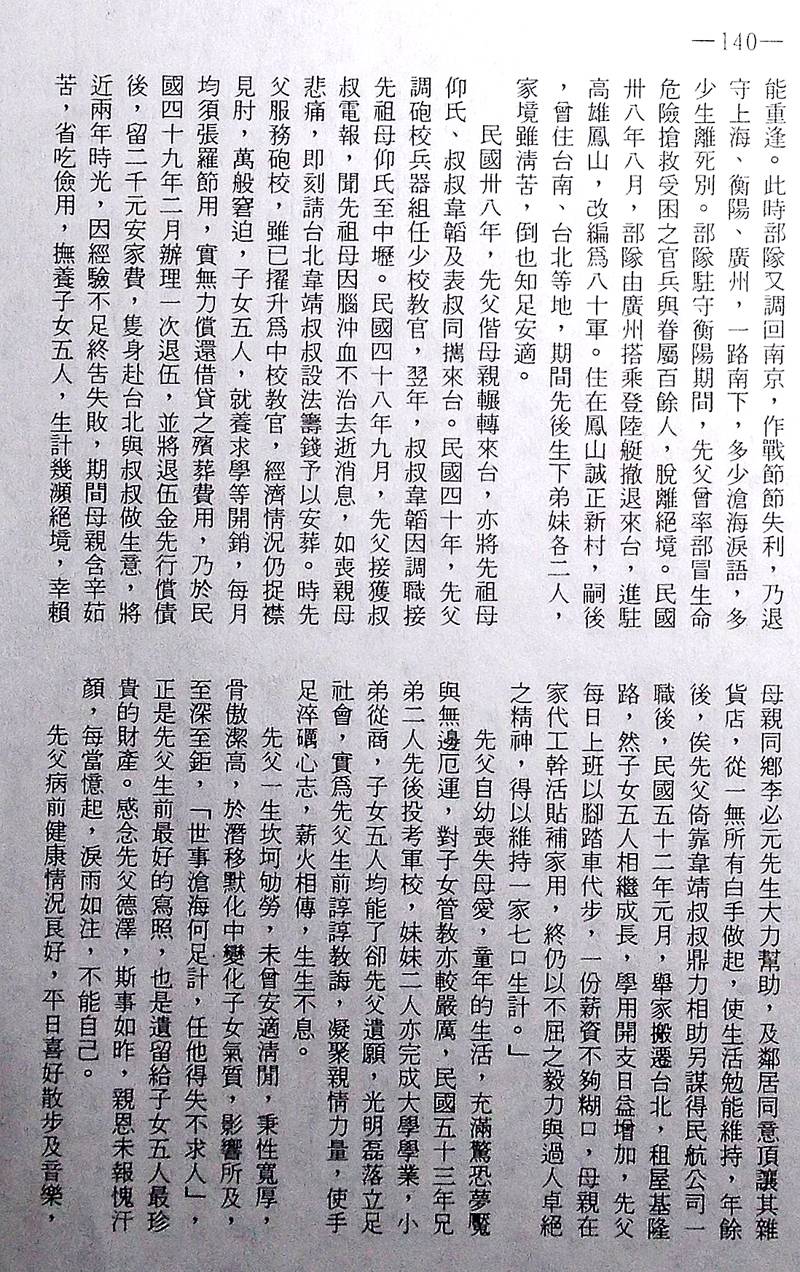 —140—
能重逢。此時部隊又調回南京，作戰節節失利，乃退
守上海、衡陽、廣州，一路南下，多少滄海淚語，多
少生離死別。部隊駐守衡陽期間，先父曾率部冒生命
危險搶救受困之官兵與眷屬百餘人，脫離絕境。民國
卅八年八月，部隊由廣州搭乘登陸艇撤退來台，進駐
高雄鳳山，改編爲八十軍。住在鳳山誠正新村，嗣後
，曾住台南、台北等地，期間先後生下弟妹各二人，
家境雖清苦，倒也知足安適。
民國卅八年，先父偕母親輾轉來台，亦將先祖母
仰氏、叔叔韋韜及表叔同攜來台。民國四十年，先父
調砲校兵器組任少校教官，翌年，叔叔韋韜因調職接
先祖母仰氏至中壢。民國四十八年九月，先父接獲叔
叔電報，聞先祖母因腦沖血不治去逝消息，如喪親母
悲痛，即刻請台北韋靖叔叔設法籌錢予以安葬。時先
父服務砲校，雖已擢升爲中校教官，經濟情況仍捉襟
見肘，萬般窘迫，子女五人，就養求學等開銷，每月
均須張羅節用，實無力償還借貸之殯葬費用，乃於民
國四十九年二月辦理一次退伍，並將退伍金先行償債
後，留二千元安家費，隻身赴台北與叔叔做生意，將
近兩年時光，因經驗不足終告失敗，期間母親含辛茹
苦，省吃儉用，撫養子女五人，生計幾瀕絕境，幸賴
母親同鄉李必元先生大力幫助，及鄰居同意頂讓其雜
貨店，從一無所有白手做起，使生活勉能維持，年餘
後，俟先父倚靠韋靖叔叔鼎力相助另謀得民航公司一
職後，民國五十二年元月，舉家搬遷台北，租屋基隆
路，然子女五人相繼成長，學用開支日益增加，先父
每日上班以腳踏車代步，一份薪資不夠糊口，母親在
家代工幹活貼補家用，終仍以不屈之毅力與過人卓絕
之精神，得以維持一家七口生計。」
先父自幼喪失母愛，童年的生活，充滿驚恐夢魘
與無邊厄運，對子女管教亦較嚴厲，民國五十三年兄
弟二人先後投考軍校，妹妹二人亦完成大學學業，小
弟從商，子女五人均能了卻先父遺願，光明磊落立足
社會，實爲先父生前諄諄教誨，凝聚親情力量，使手
足淬礪心志，薪火相傳，生生不息。
先父一生坎坷劬勞，未曾安適清閒，秉性寬厚，
骨傲潔高，於潛移默化中變化子女氣質，影響所及，
至深至鉅，「世事滄海何足計，任他得失不求人」，
正是先父生前最好的寫照，也是遺留給子女五人最珍
貴的財產。感念先父德澤，斯事如昨，親恩未報愧汗
顏，每當憶起，淚雨如注，不能自己。
先父病前健康情況良好，平日喜好散步及音樂，